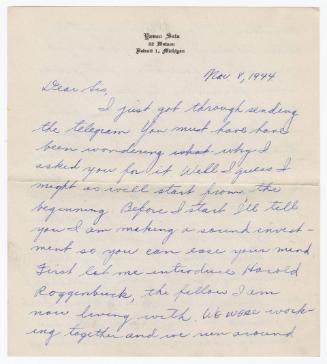 Yoneo Sato
52 Watson
Detroit 1, Michigan
Nov 8, 1944
Dear Sis,
I just got through sending
the telegram You must have have
been wondering what why I
asked you for it Well I guess I
might as well start from the
beginning Before I start I'll tell
you I am making a sound invest-
ment so you can ease your mind.
First let me introduce Harold
Roggenbuck, the fellow I am
now living with. WE WERE work-
ing together and we run around